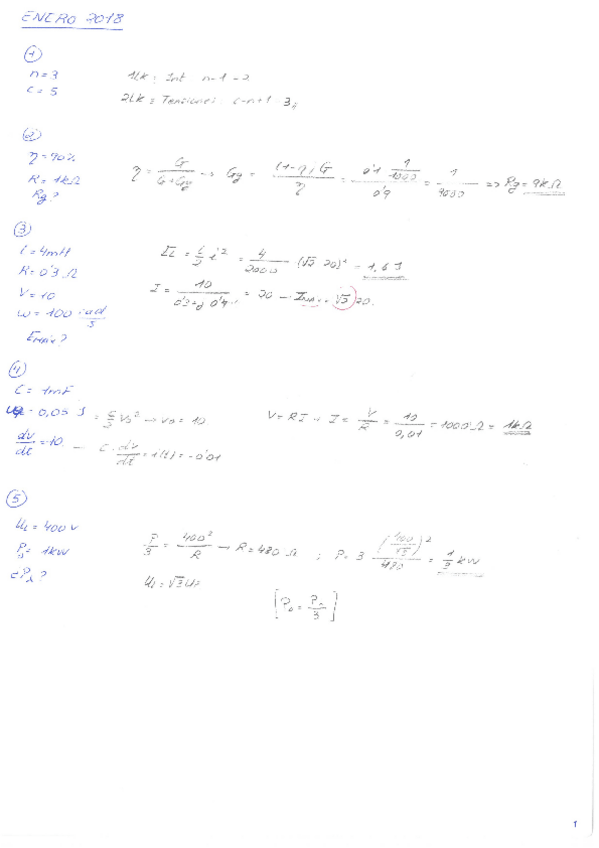 ENERO 2018
①
n=3
c=5
1LK: Int n-1=2
2LK = Tensiones c-n+1=3,,
②
η=90%
R=1kΩ
Rg?
η = G/(G+Gg) → Gg = (1-η)G/η = 0'1 1/1000 / 0'9 = 1/9000 ⇒ Rg=9kΩ
③
L=4mH
R=0'3 Ω
V=10
ω=100 rad/s
Emáx?
EL = L/2 i² = 4/2000 (√2 20)² = 1,6 J
I = 10/(0'3+j0'4) = 20 → IMAX = √2 20.
④
C=1mF
- 0,05 J = C/2 V0² → V0=10
dv/dt=-10. → C·dv/dt=i(t)=-0'01
V=RI → I = V/R = 10/0,01 = 1000Ω = 1kΩ
⑤
UL=400V
= 1kW
?
P/3 = 400²/R → R=480 Ω ; P= 3 (400/√3)²/480 = 1/3 kW
UL=√3
1